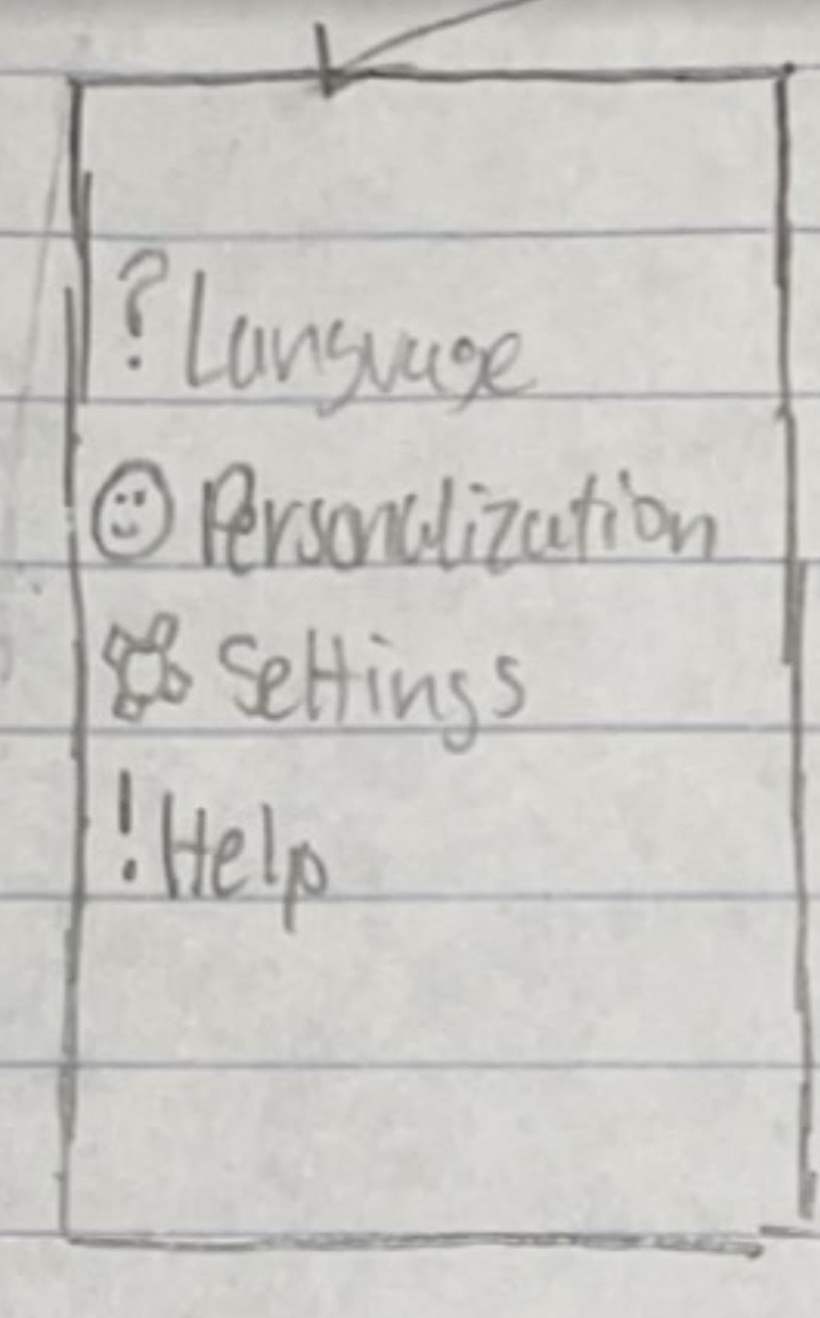 ? Language
Personalization
Settings
! Help